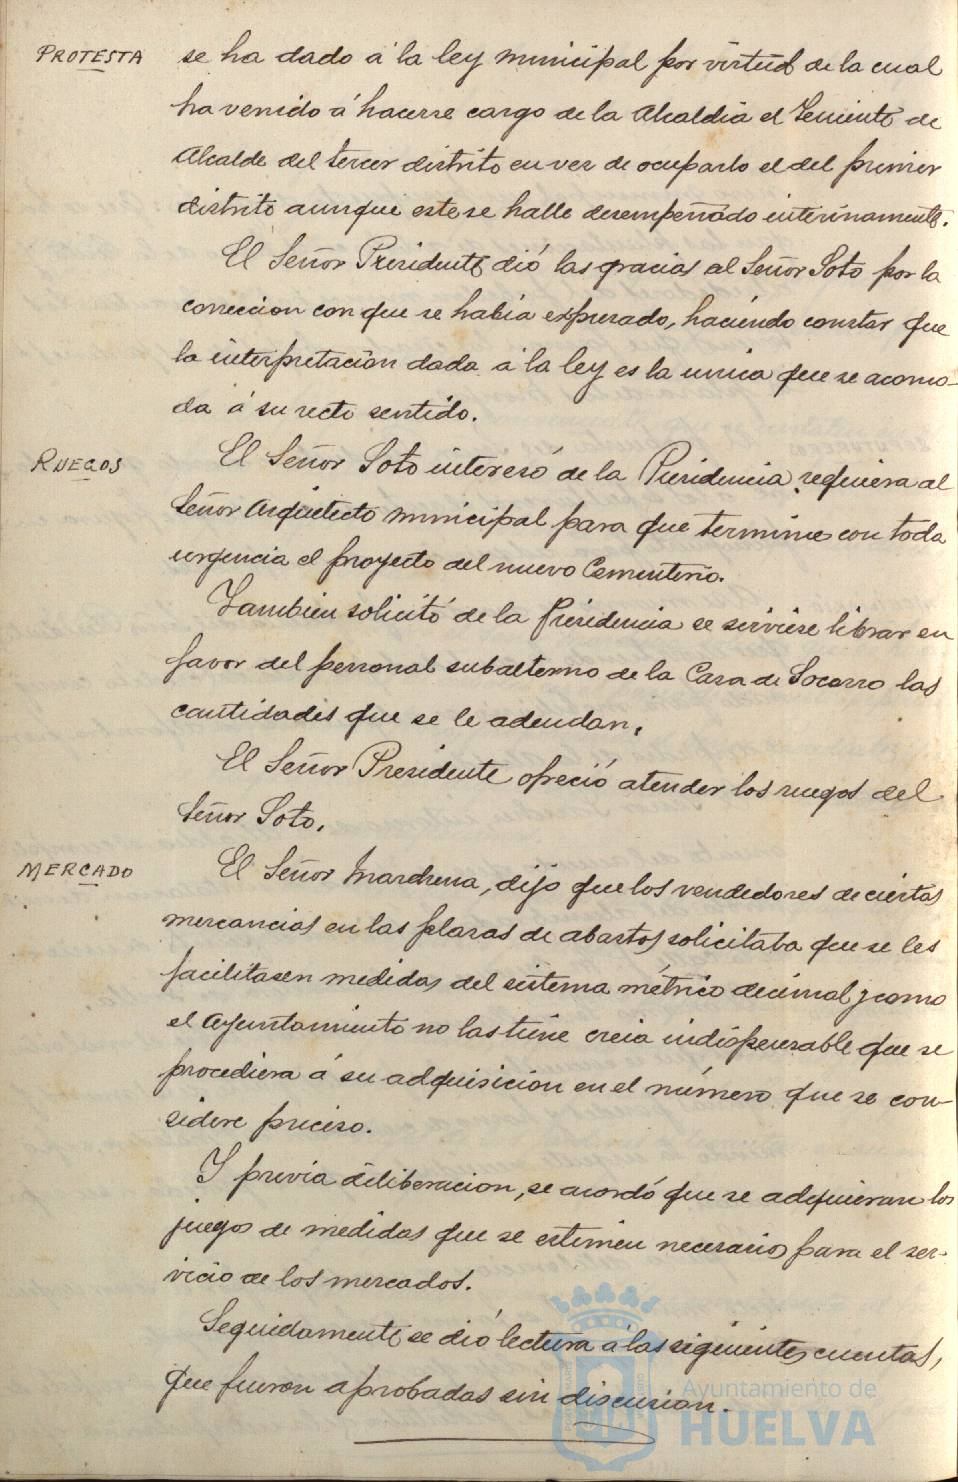 PROTESTA
se ha dado á la ley municipal por virtud de la cual
ha venido á hacerse cargo de la Alcaldia el Teniente de
Alcalde del tercer distrito en vez de ocuparlo el del primer
distrito aunque este se halle desempeñado interinamente.
El Señor Presidente dió las gracias al Señor Soto por la
correccion con que se habia expresado, haciendo constar que
la interpretación dada á la ley es la unica que se acomo-
da á su recto sentido.
RUEGOS
El Señor Soto interesó de la Presidencia requiera al
Señor Arquitecto municipal para que termine con toda
urgencia el proyecto del nuevo Cementerio.
Tambien solicitó de la Presidencia se sirviese librar en
favor del personal subalterno de la Casa de Socorro las
cantidades que se le adeudan.
El Señor Presidente ofreció atender los ruegos del
Señor Soto.
MERCADO
El Señor Marchena, dijo que los vendedores de ciertas
mercancias en las plazas de abastos solicitaba que se les
facilitasen medidas del sistema métrico decimal y como
el Ayuntamiento no las tiene creia indispensable que se
procediera á su adquisición en el número que se con-
sidere preciso.
Y previa deliberacion, se acordó que se adquieran los
juegos de medidas que se estimen necesarios para el ser-
vicio de los mercados.
Seguidamente se dió lectura á las siguientes cuentas,
que fueron aprobadas sin discusion.
Ayuntamiento de
HUELVA